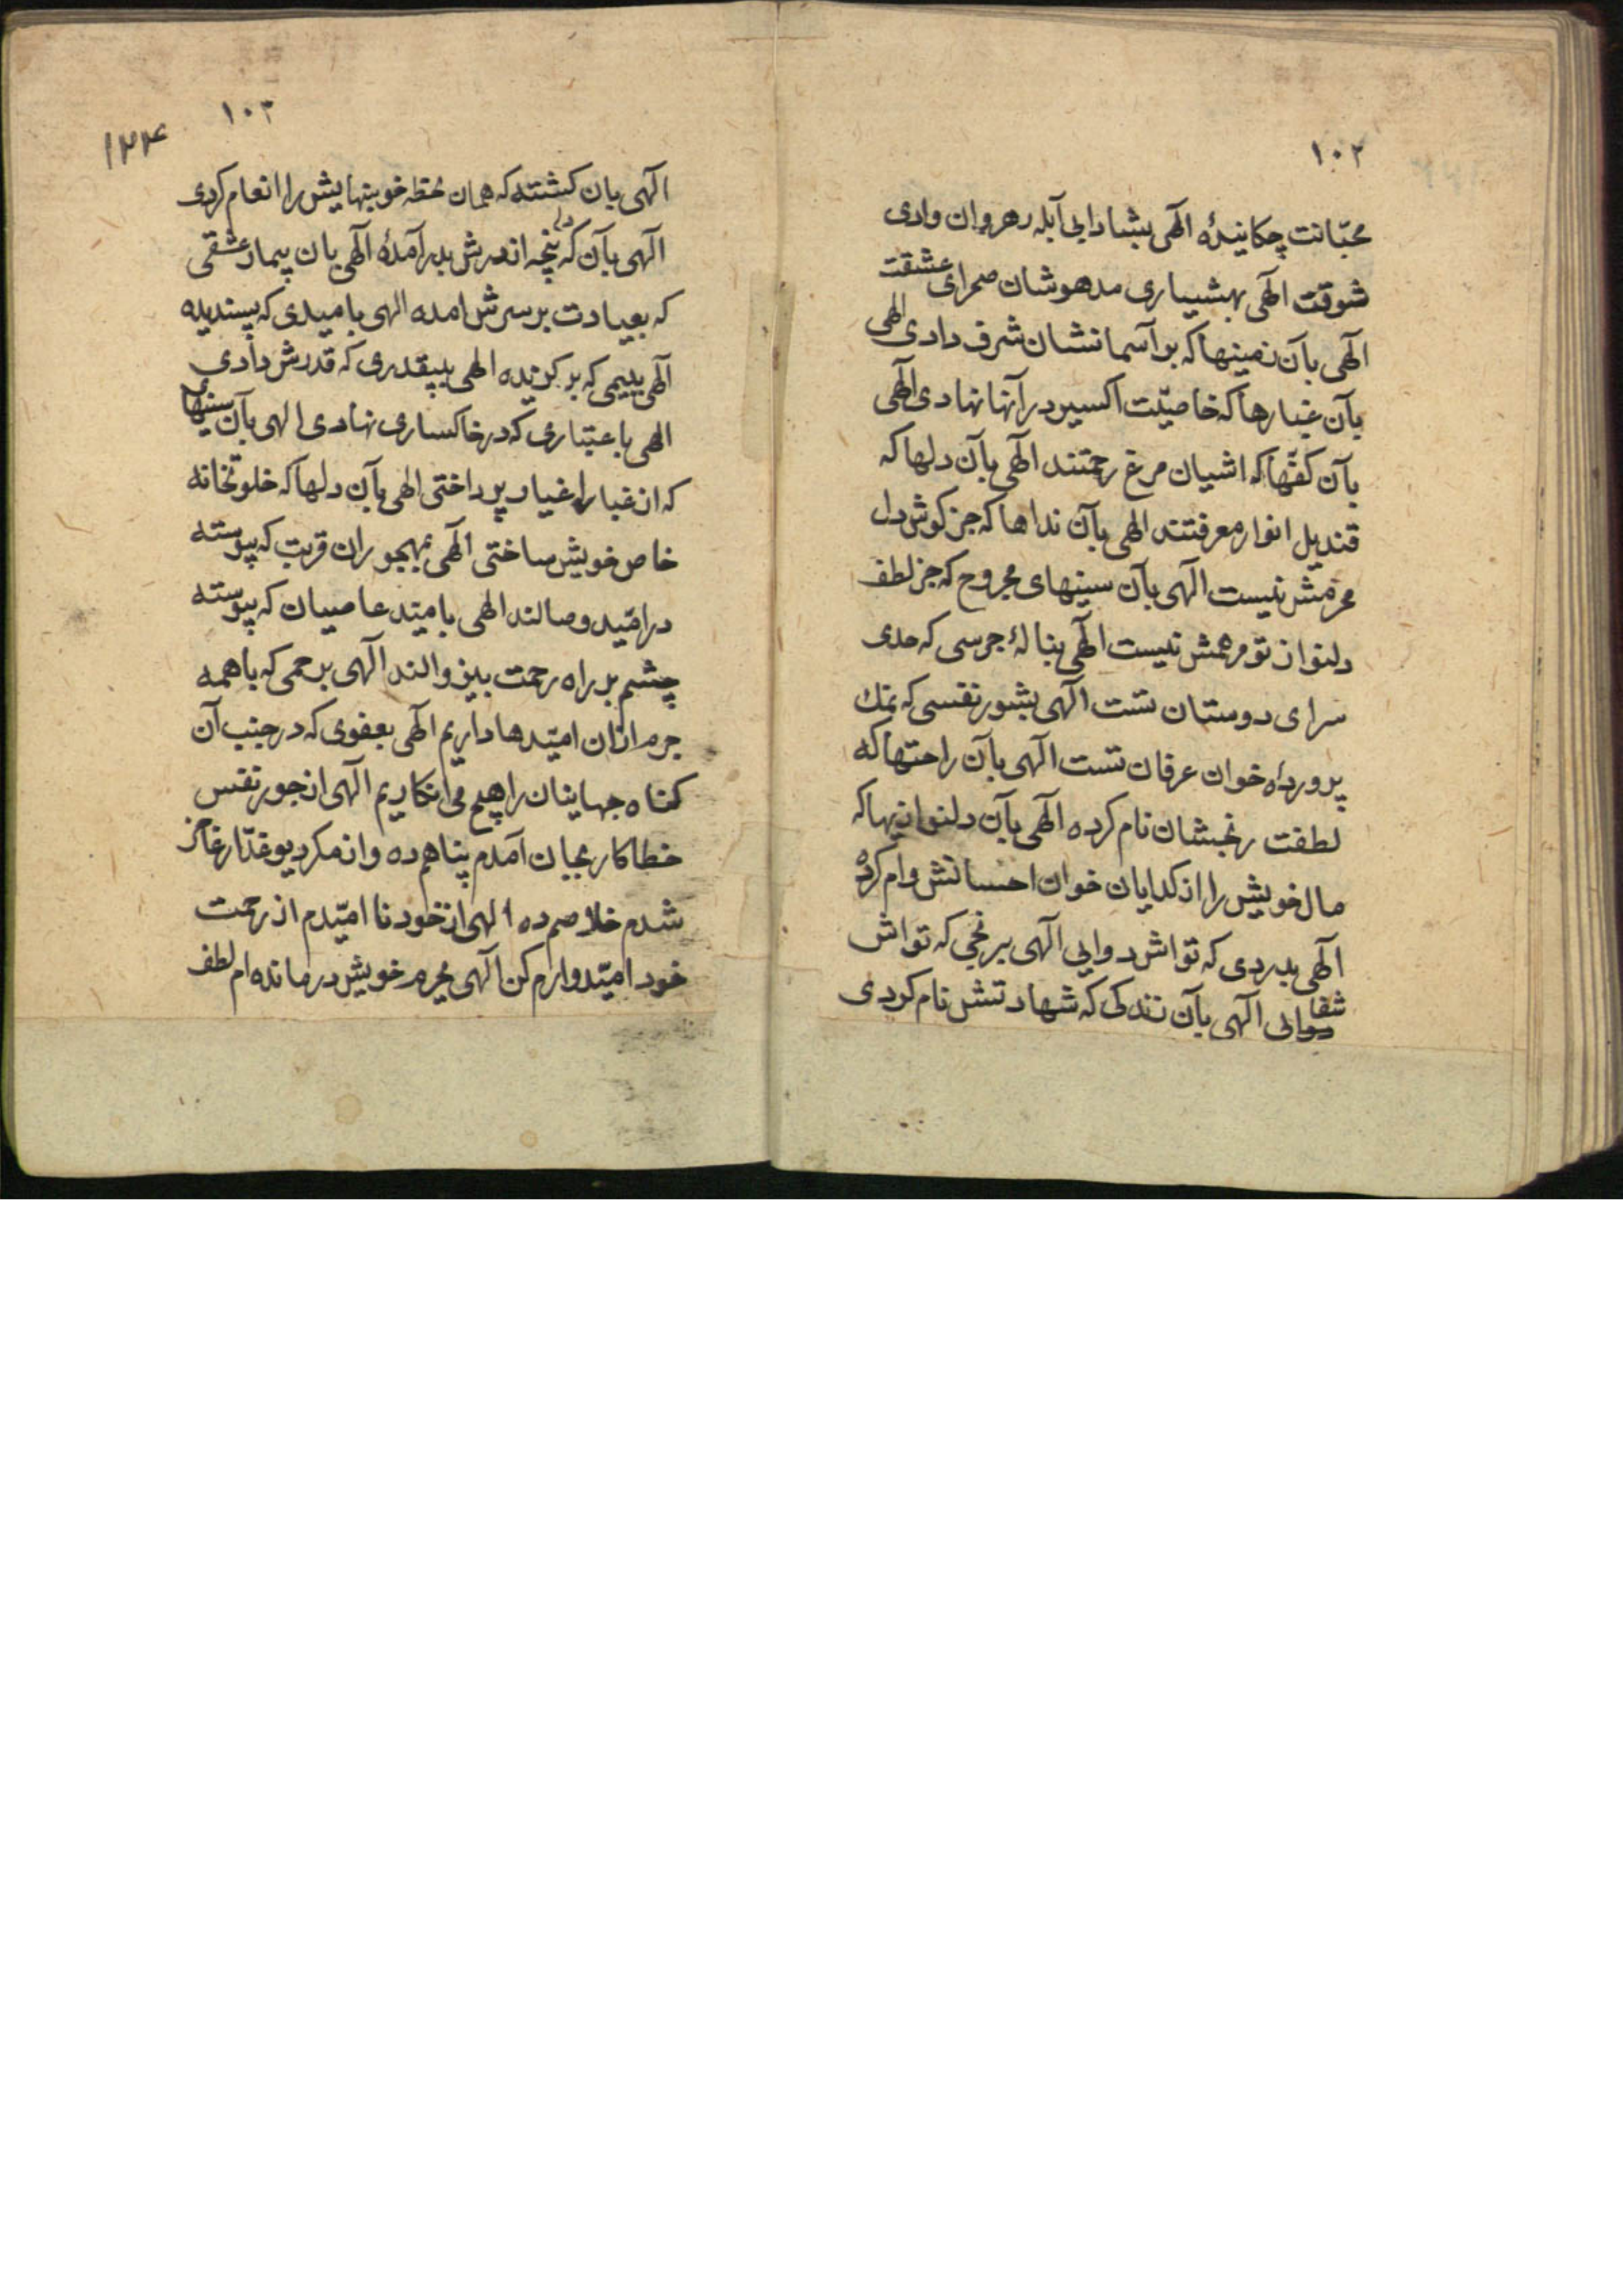 ۱۰۲
محبّانت چکانیدهٔ الهی بشادابی آبله رهروان وادی
شوقت الهی بهشیاری مدهوشان صحرای عشقت
الهی بآن زمینها که بر آسمانشان شرف دادی الهی
بآن غبارها که خاصیّت اکسیر در آنها نهادی الهی
بآن کفّها که اشیان مرغ رحمتند الهی بآن دلها که
قندیل انوار معرفتند الهی بآن نداها که جز کوش دل
محرمش نیست الهی بآن سینهای مجروح که جز لطف
دلنواز تو مرهمش نیست الهی بنالهٔ جرسی که حدی
سرای دوستان تست الهی بشور نفسی که نمك
پرورداه خوان عرفان تست الهی بآن راحتها که
لطفت رنجشان نام کرده الهی بآن دلنوازیها که
مال خویش را از کدایان خوان احسانش وام کرده
الهی بدردی که تواش دوایی الهی برنجی که تواش
شفایی الهی بآن زندکی که شهادتش نام کردی
۱۰۳
۱۲۴
الهی بان کشته که همان لحظه خونبهایش را انعام کردی
الهی بآن که پنجه از درش بدر آمدهٔ الهی بان بیمار عشقی
که بعیادت بر سرش امده الهی بامیدی که پسندیده
الهی ببیمی که برکزیده الهی ببیقدری که قدرش دادی
الهی باعتباری که در خاکساری نهادی الهی بآن سینها
که از غبار اغیار پرداختی الهی بآن دلها که خلوتخانه
خاص خویش ساختی الهی بمهجوران قربت که پیوسته
در امّید وصالند الهی بامّید عاصیان که پیوسته
چشم بر راه رحمت بیزوالند الهی برحمی که باهمه
جرم ازان امیّدها داریم الهی بعفوی که در جنب آن
کناه جهانیان را هیچ می انکاریم الهی از جور نفس
خطاکار بجان آمدم پناهم ده و از مکر دیو غدّار عاجز
شدم خلاصم ده الهی از خود نا امیّدم از رحمت
خود امیّدوارم کن الهی بجرم خویش درمانده ام لطف